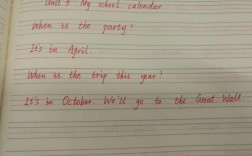 Unit 3 My school calendar
When is the party?
It's in April
When is the trip this year?
It's in October. We'll go to the Great Wall